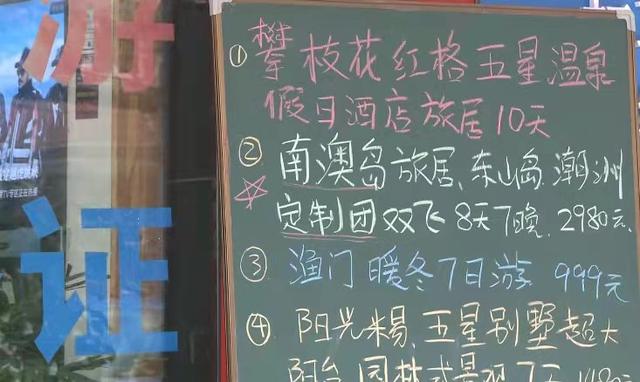 游
证
① 攀枝花红格五星温泉
假日酒店旅居10天
② 南澳岛旅居、东山岛、潮洲
定制团双飞8天7晚、2980元.
③ 渔门暖冬7日游 999元
④ 阳光米易、五星别墅超大
阳台 园林式景观7天